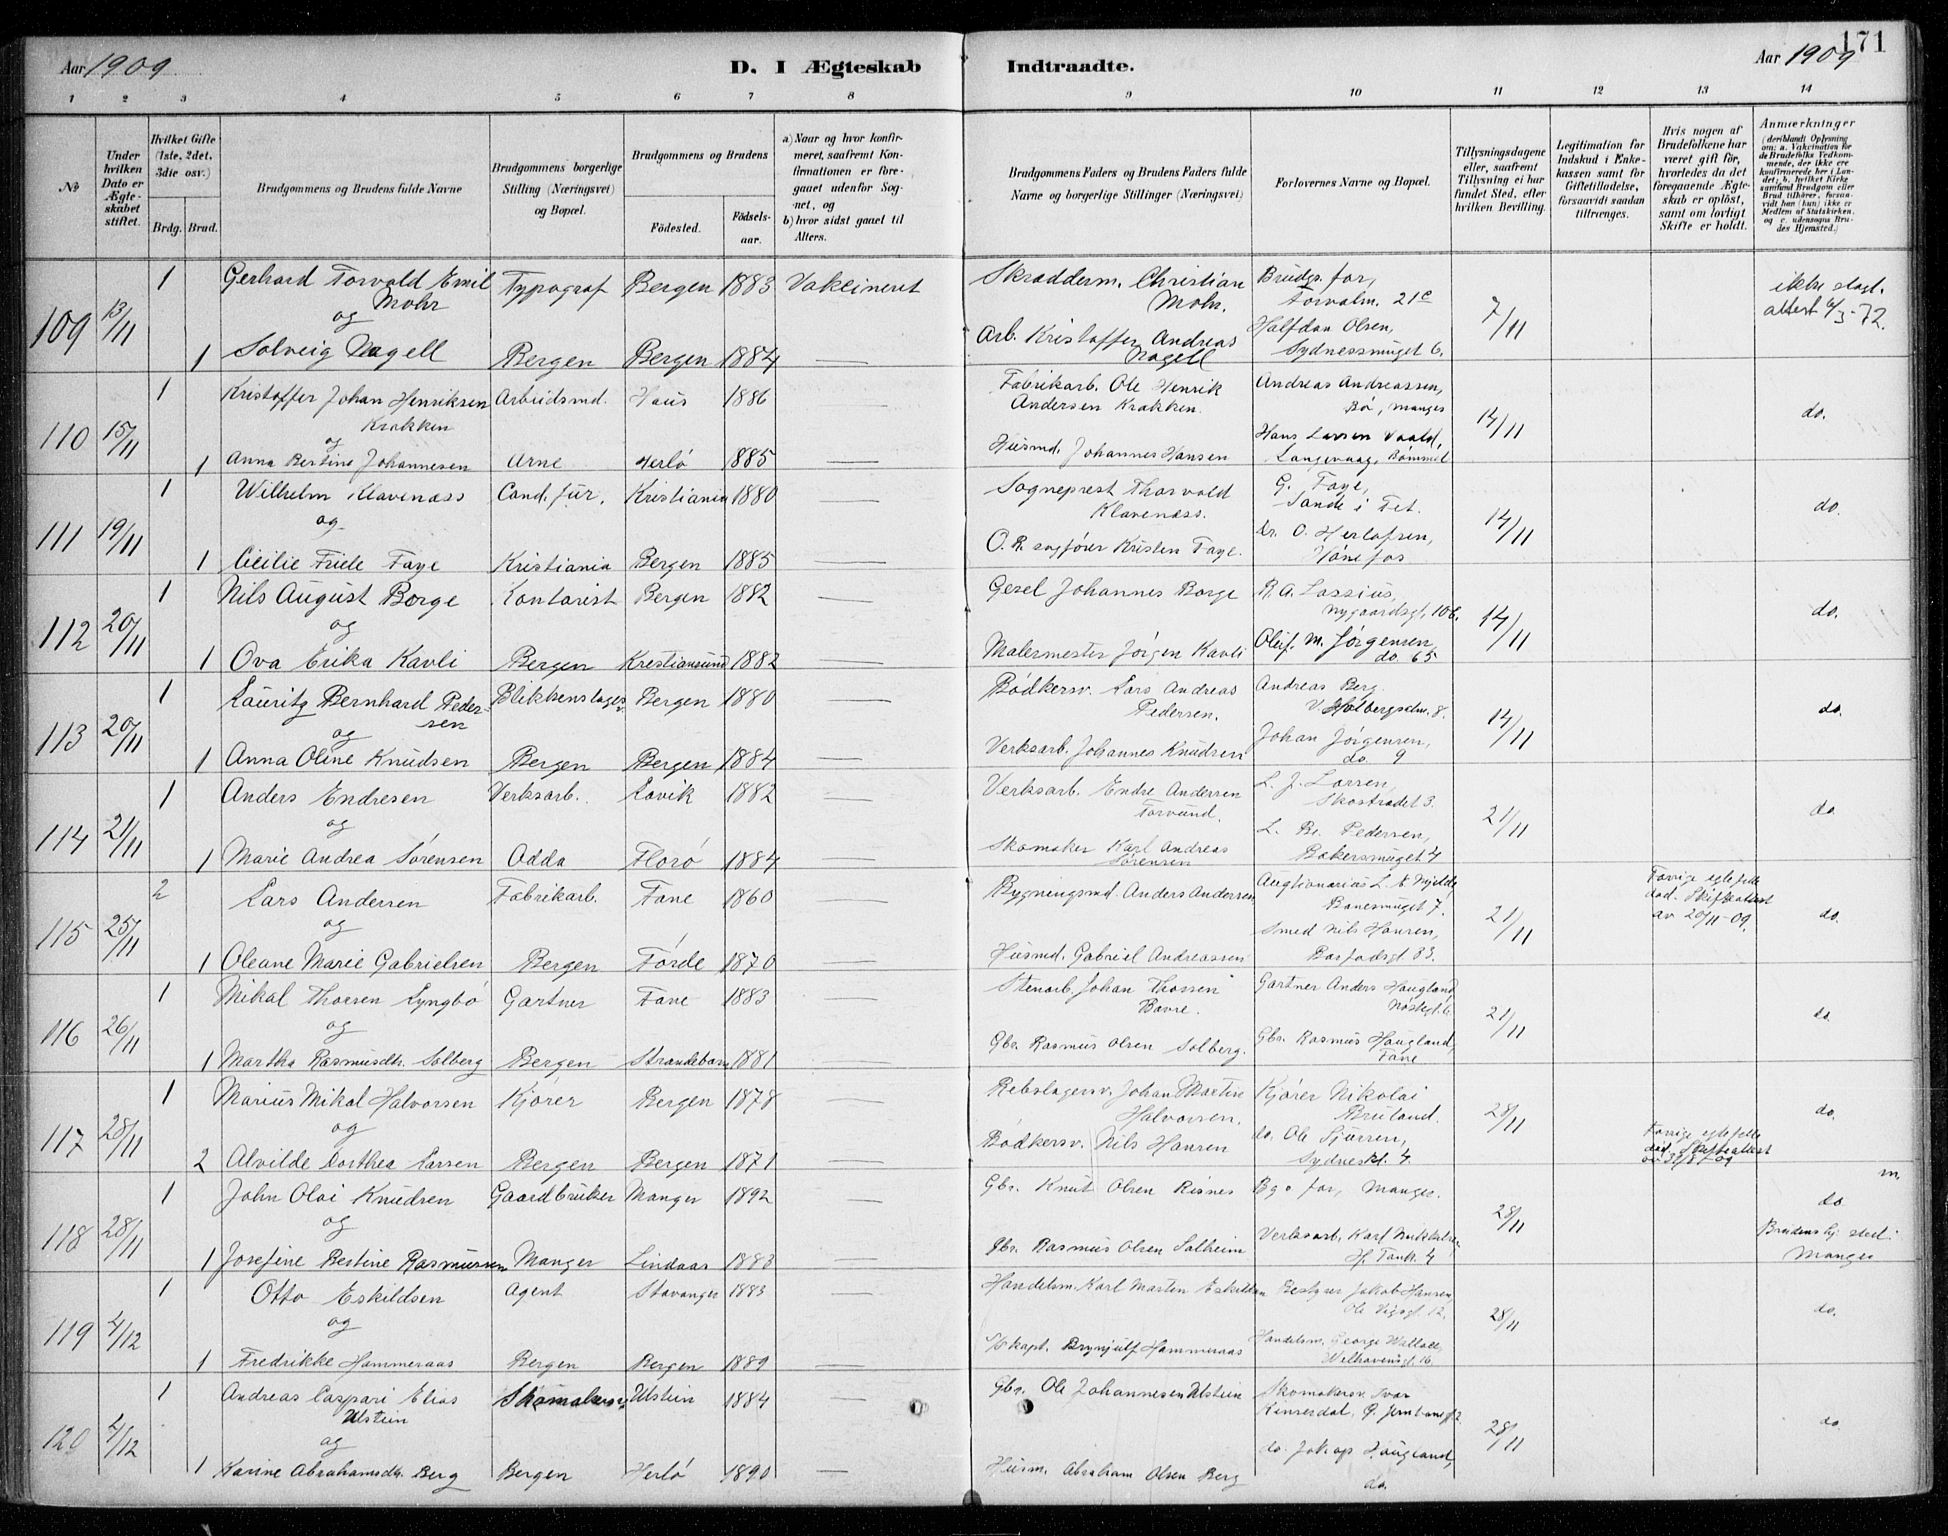 171
Aar 1909
D. I Ægteskab
Indtraadte.
Aar 1909
1 2 3 4 5 6 7 8 9 10 11 12 13 14
No
Under hvilken Dato er Ægteskabet stiftet.
Hvilket Gifte (1ste, 2det, 3die osv.)
Brdg. Brud.
Brudgommens og Brudens fulde Navne
Brudgommens borgerlige Stilling (Næringsvei) og Bopæl.
Brudgommens og Brudens
Fødested.
Fødsels-aar.
a) Naar og hvor konfirmeret, saafremt Konfirmationen er foregaaet udenfor Sognet, og
b) hvor sidst gaaet til Alters.
Brudgommens Faders og Brudens Faders fulde Navne og borgerlige Stillinger (Næringsvei)
Forlovernes Navne og Bopæl.
Tillysningsdagene eller, saafremt Tillysning ei har fundet Sted, efter hvilken Bevilling.
Legitimation for Indskud i Enkekassen samt for Giftetilladelse, forsaavidt saadan tiltrænges.
Hvis nogen af Brudefolkene har været gift før, hvorledes da det foregaaende Ægteskab er opløst, samt om lovligt Skifte er holdt.
Anmærkninger
(deriblandt Oplysning om: a. Vakcination for de Brudefolks Vedkommende, der ikke ere konfirmerede her i Landet; b. hvilket Kirkesamfund Brudgom eller Brud tilhører, forsaavidt han (hun) ikke er Medlem af Statskirken, og c. udensogns Brudes Hjemsted.)
109 13/11 1 Gerhard Torvald Emil Mohr Typograf Bergen 1883 Vakcineret Skrædderm. Christian Mohr. Brudgs. far, Torvalm. 21c 7/11 ikke slegt. attest 6/3-72.
og
1 Solveig Nagell Bergen Bergen 1884 — Arb. Kristoffer Andreas Nagell Halfdan Olsen, Sydnessmuget 6.
110 15/11 1 Kristoffer Johan Henriksen Krakken Arbeidsmd. Haus 1886 — Fabrikarb. Ole Henrik Andersen Krakken. Andreas Andreassen, Bø, Manger 14/11 do.
og
1 Anna Bertine Johannesen Arne Herlø 1885 — Husmd. Johannes Hansen Hans Larsen Vaald, Langevaag, Bømmel
111 19/11 1 Wilhelm Klaveness Cand. jur. Kristiania 1880 — Sogneprest Thorvald Klaveness. G. Faye, Sande i Fet. 14/11 do.
og
1 Cecilie Friele Faye Kristiania Bergen 1885 — O. R. sagfører Kristen Faye. Dr. O. Herlofsen, Hønefos
112 20/11 1 Nils August Borge Kontorist Bergen 1882 — Gesel Johannes Borge R. A. Lassius, Nygaardsgt. 106. 14/11 do.
og
1 Ova Erika Kavli Bergen Kristiansund 1882 — Malermester Jørgen Kavli Oluf M. Jørgensen do. 65
113 20/11 1 Lauritz Bernhard Pedersen Blikkenslager Bergen 1880 — Bødkersv. Lars Andreas Pedersen. Andreas Berg V. Holbergsalm. 8. 14/11 do.
og
1 Anna Oline Knudsen Bergen Bergen 1884 — Verksarb. Johannes Knudsen Johan Jørgensen, do. 9
114 21/11 1 Anders Endresen Verksarb. Lavik 1882 — Verksarb. Endre Andersen Torvund. L. J. Larsen, Skostrædet 3. 21/11 do
og
1 Marie Andrea Sørensen Odda Florø 1884 — Skomaker Karl Andreas Sørensen L. Br. Pedersen, Bakersmuget 4
115 25/11 2 Lars Andersen Fabrikarb. Fane 1860 — Bygningsmd. Anders Andersen Auktionarius L. E. Mjelde Banesmuget 7. 21/11 Forrige egtefelle død. Skifteattest av 20/11-09. do.
og
1 Oleane Marie Gabrielsen Bergen Førde 1870 — Husmd. Gabriel Andreassen Smed Nils Hansen,
116 26/11 1 Mikal Thorsen Lyngbø Gartner Fane 1883 — Stenarb. Johan Thorsen Gartner Anders Haugland Nøstegt. 21/11 do.
og
1 Martha Rasmusdtr. Solberg Bergen Strandebarm 1881 — Gbr. Rasmus Olsen Solberg. Gbr. Rasmus Haugland, Fane
117 28/11 1 Marius Mikal Halvorsen Kjører Bergen 1878 — Rebslagersv. Johan Martin Halvorsen. Kjører Nikolai Bruland. 28/11 do.
og
2 Alvilde Dorthea Larsen Bergen Bergen 1871 — Bødkersv. Nils Hansen do. Ole Sjursen, Sydneskl. 4. Forrige egtefelle død. Skifteattest
118 28/11 1 John Olai Knudsen Gaardbruker Manger 1892 — Gbr. Knut Olsen Risnes Bgs far, Manger. 28/11 do
og
1 Josefine Bertine Rasmussen Manger Lindaas 1883 — Gbr. Rasmus Olsen Solheim Verksarb. Karl H. Tank. 4 Brudens hj.sted: Manger
119 4/12 1 Otto Eskildsen Agent Stavanger 1883 — Handelsm. Karl Martin Eskildsen Bestyrer Jakob Hansen Ole Vigsgt. 12. 28/11 do.
og
1 Fredrikke Hammeraas Bergen Bergen 1889 — S/skapt. Brynjulf Hammeraas Handelsm. George Wallace, Welhavensgt. 16.
120 4/12 1 Andreas Caspari Elias Utstein Skomakersv. Utstein 1884 — Gbr. Ole Johannesen Utstein Skomakersv. Ivar Kinserdal, 28/11 do
og
1 Karine Abrahamsdtr. Berg Bergen Herlø 1890 — Husm. Abraham Olsen Berg do. Jakop Haugland, do.